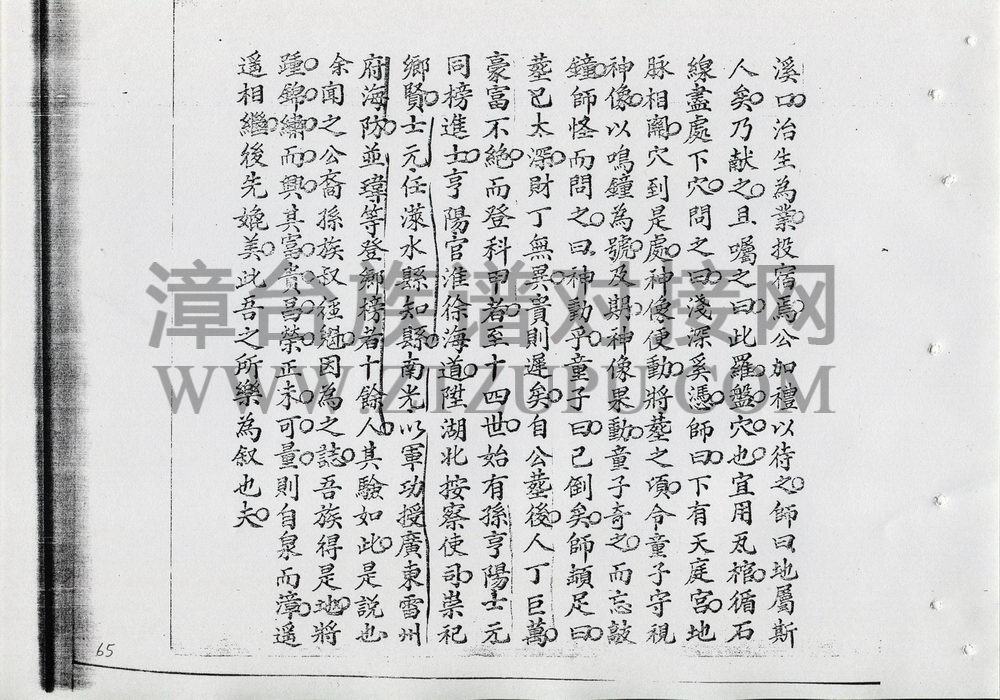 溪口治生為業投宿馬公加禮以待之師曰地屬斯
人矣乃献之且囑之曰此羅盤穴也宜用瓦棺循石
線盡處下穴問之曰淺深奚憑師曰下有天庭宮地
脉相關穴到是處神像便動將塟之頃令童子守視
神像以鳴鐘為號及期神像果動童子奇之而忘敲
鐘師怪而問之曰神動乎童子曰已倒矣師頓足曰
塟已太深財丁無異貴則遲矣自公塟後人丁巨萬
豪富不絶而登科甲者至十四世始有孫亨陽士元
同榜進士亨陽官淮徐海道陞湖北按察使司崇祀
鄉賢士元任滎水縣知縣南光以軍功授廣東雷州
府海防並瑋等登鄉榜者十餘人其驗如此是說也
余聞之公裔孫族叔徑因為之誌吾族得是地將
踵錦繡而興其富貴昌榮正未可量則自泉而漳遥
遥相繼後先媲美此吾之所樂為叙也夫
漳台族谱对接网
WWW.ZIZUPU.COM
65